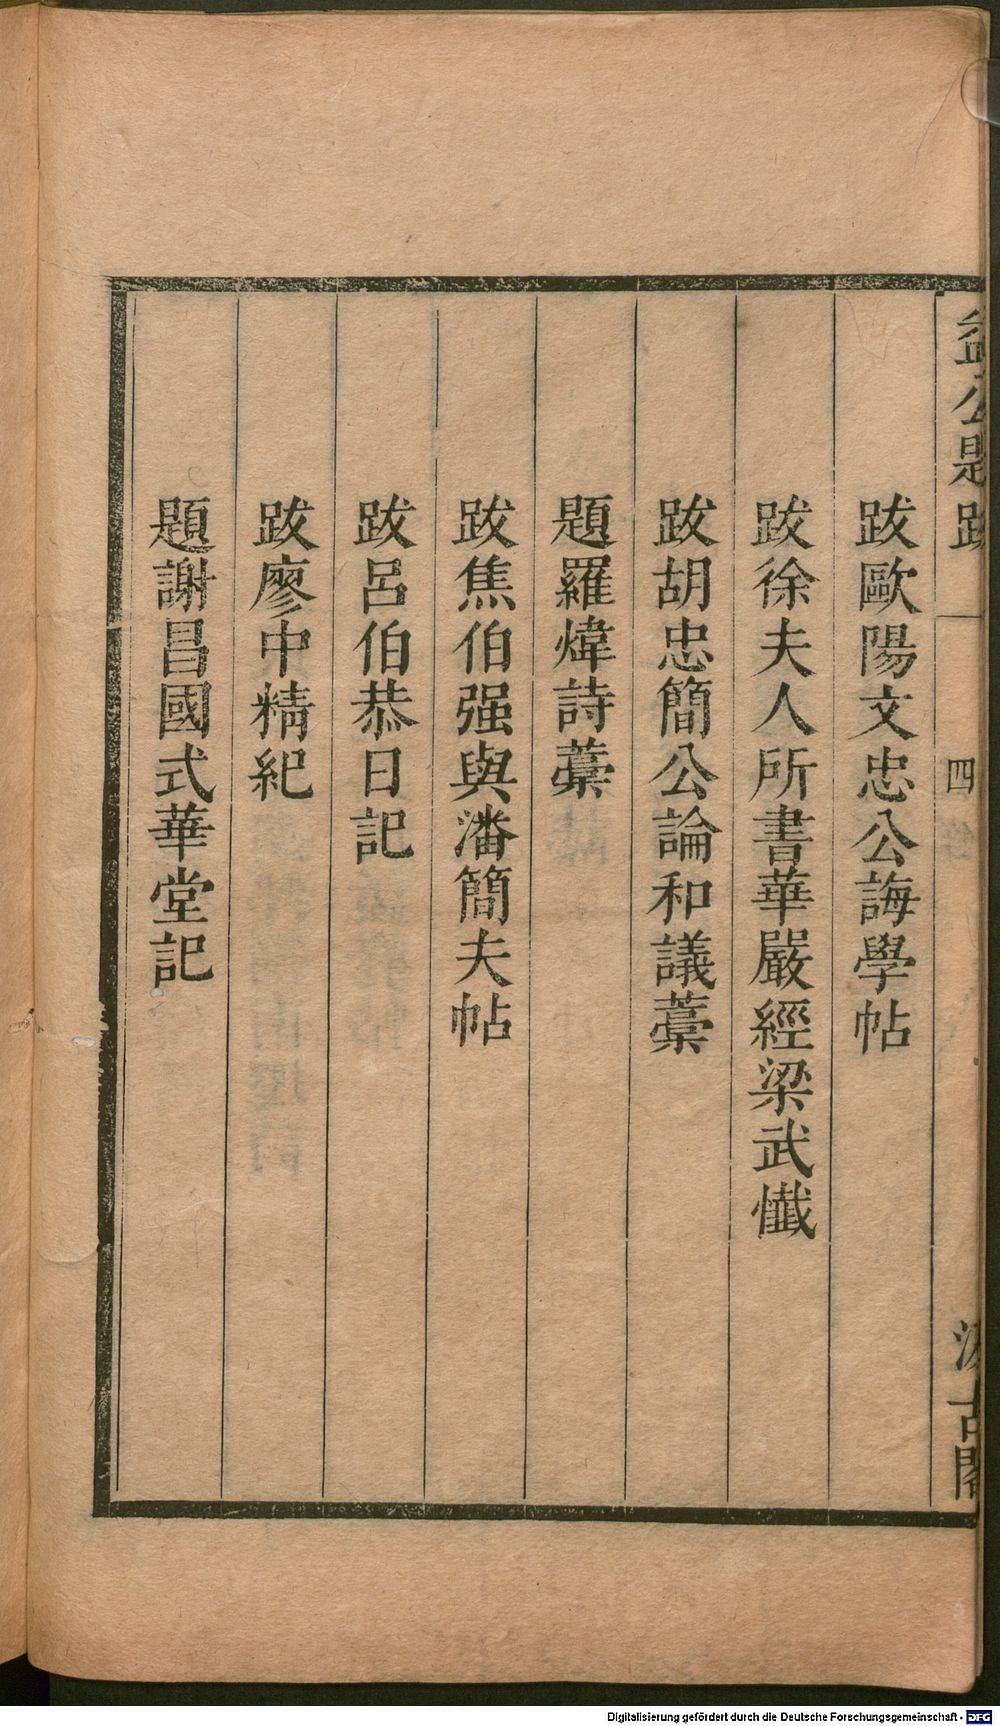 益公題跋
四
汲古閣
跋歐陽文忠公誨學帖
跋徐夫人所書華嚴經梁武懺
跋胡忠簡公論和議藁
題羅煒詩藁
跋焦伯强與潘簡夫帖
跋呂伯恭日記
跋廖中精紀
題謝昌國式華堂記
Digitalisierung gefördert durch die Deutsche Forschungsgemeinschaft - DFG